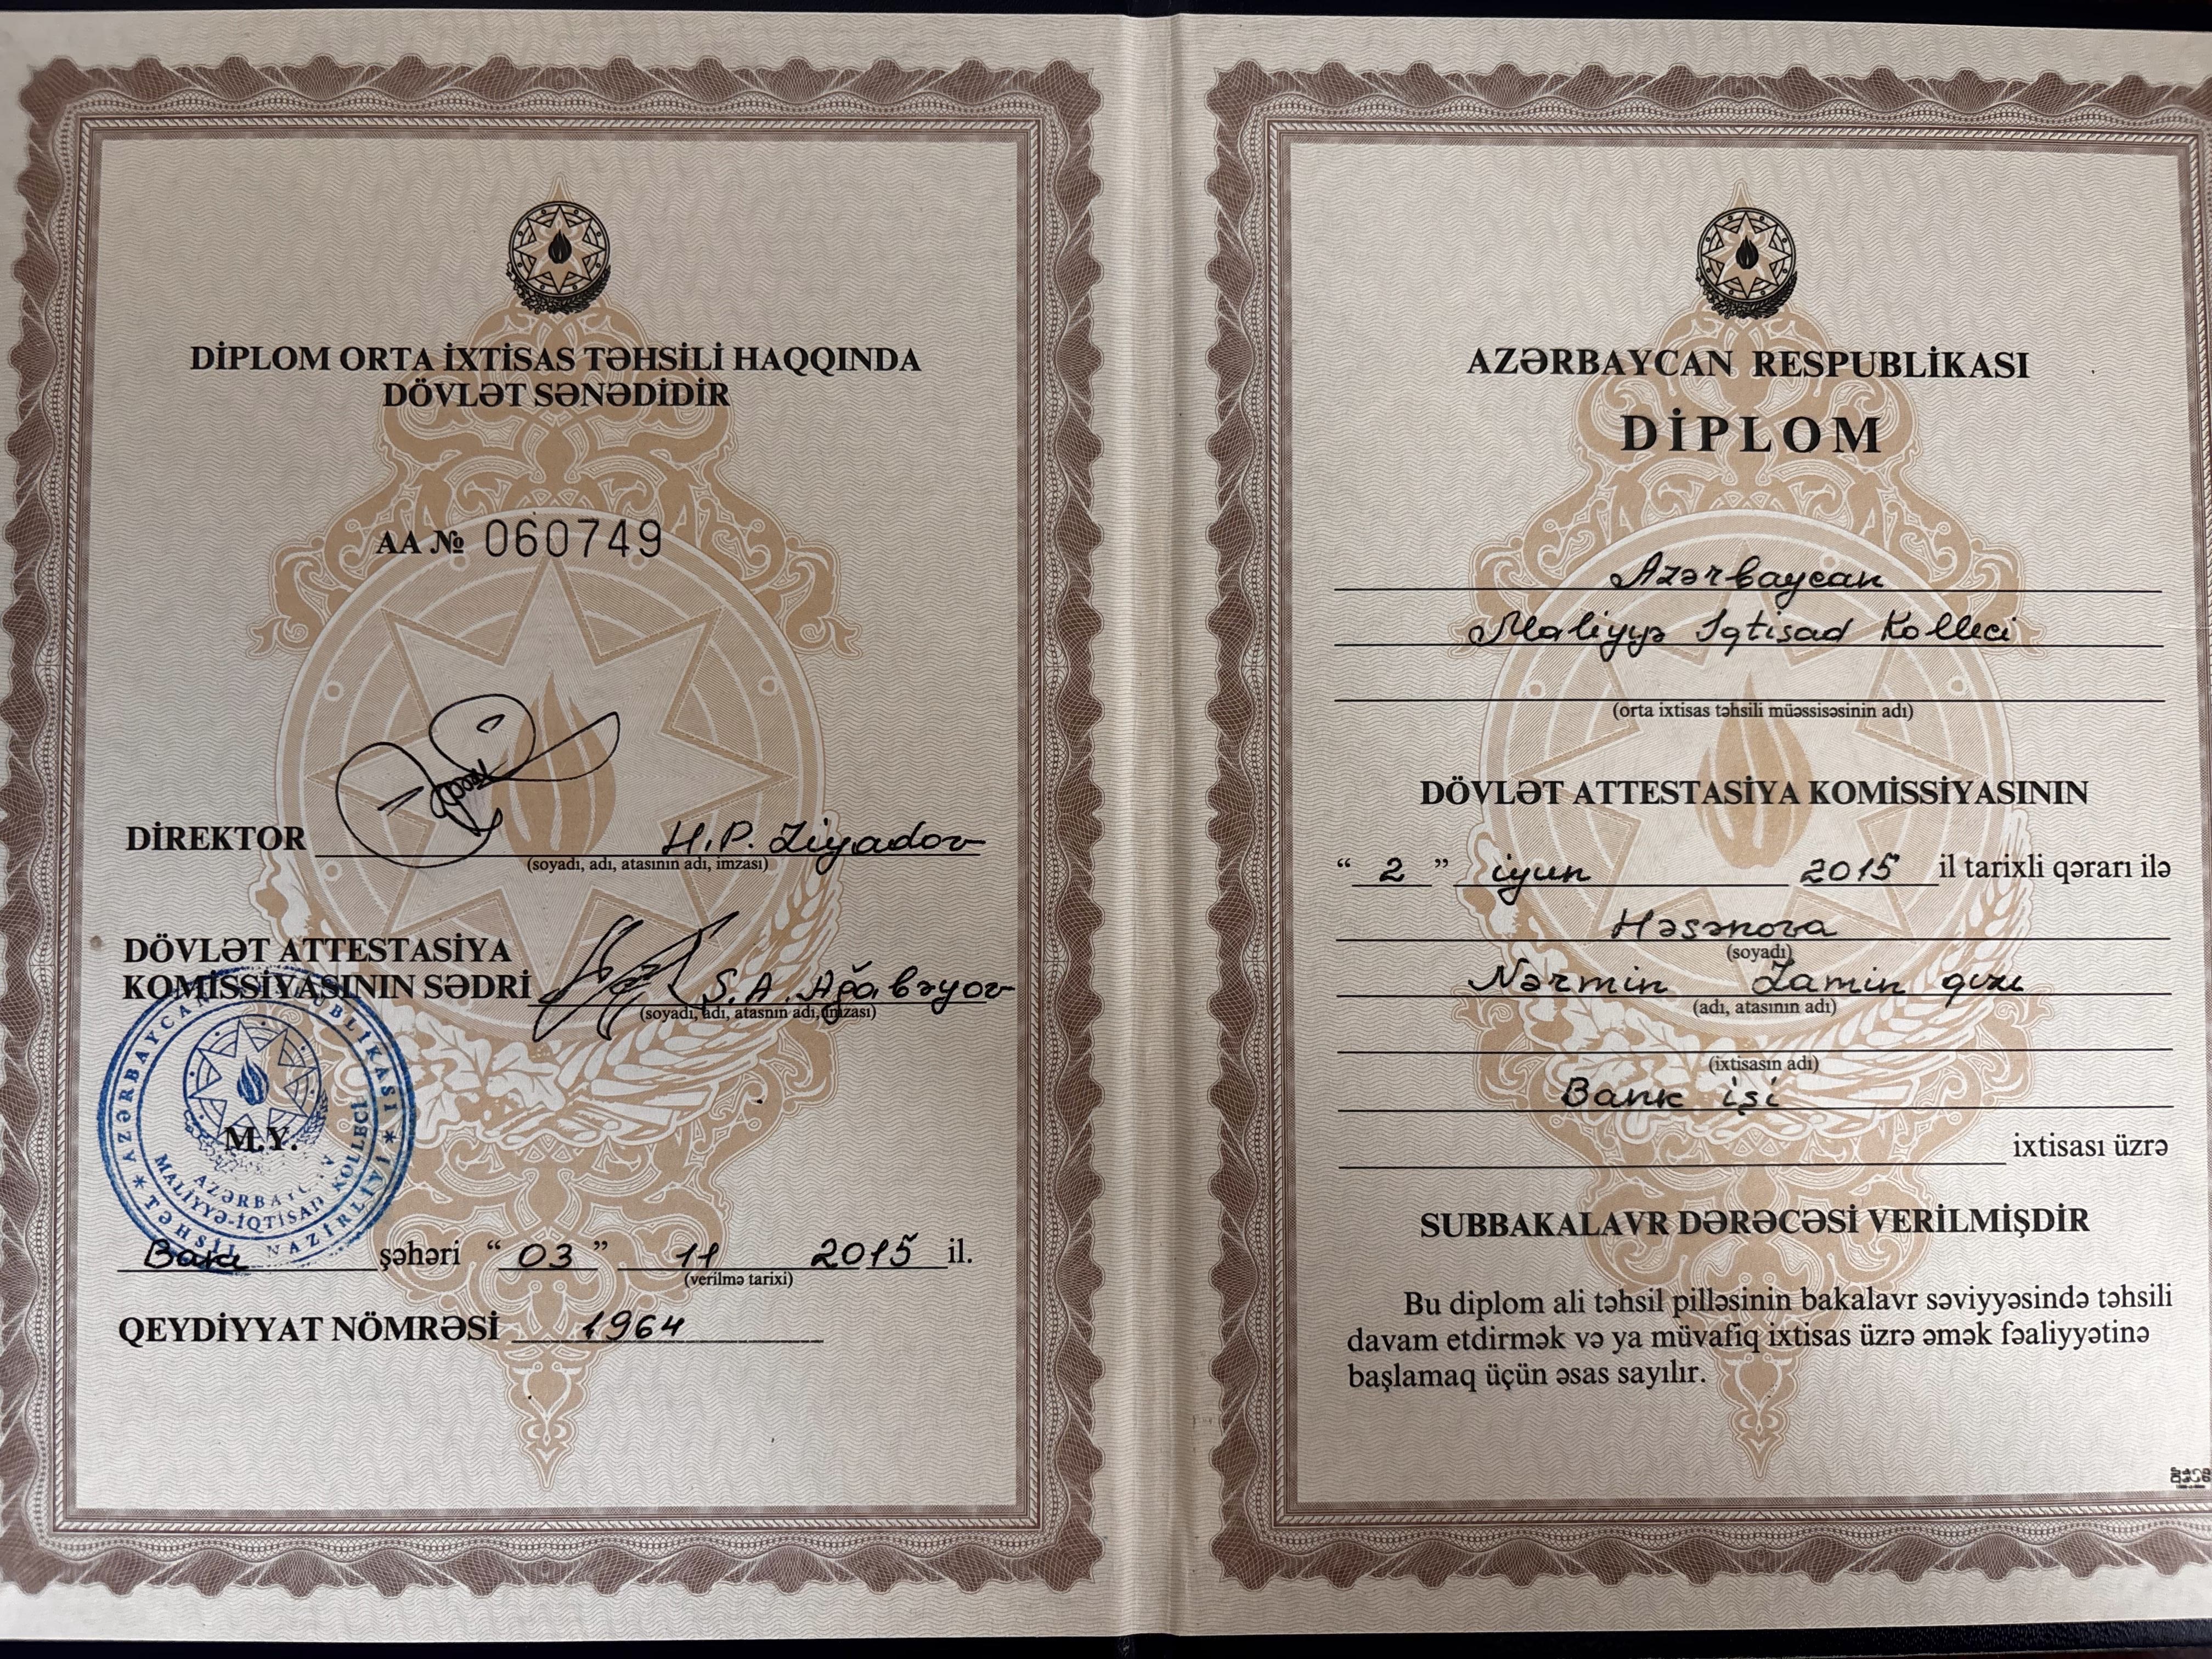 DİPLOM ORTA İXTİSAS TƏHSİLİ HAQQINDA
DÖVLƏT SƏNƏDİDİR
AA № 060749
DİREKTOR H.P. Ziyadov
(soyadı, adı, atasının adı, imzası)
DÖVLƏT ATTESTASİYA
KOMİSSİYASININ SƏDRİ S.A. Ağabəyov
(soyadı, adı, atasnın adı, imzası)
AZƏRBAYCAN RESPUBLİKASI
TƏHSİL NAZİRLİYİ
AZƏRBAYCAN
MALİYYƏ-İQTİSAD KOLLECİ
M.Y.
Bakı şəhəri “03” 11 2015 il.
(verilmə tarixi)
QEYDİYYAT NÖMRƏSİ 1964
AZƏRBAYCAN RESPUBLİKASI
DİPLOM
Azərbaycan
Maliyyə İqtisad Kolleci
(orta ixtisas təhsili müəssisəsinin adı)
DÖVLƏT ATTESTASİYA KOMİSSİYASININ
“2” iyun 2015 il tarixli qərarı ilə
Həsənova
(soyadı)
Nərmin Zamin qızı
(adı, atasının adı)
(ixtisasın adı)
Bank işi
ixtisası üzrə
SUBBAKALAVR DƏRƏCƏSİ VERİLMİŞDİR
Bu diplom ali təhsil pilləsinin bakalavr səviyyəsində təhsili
davam etdirmək və ya müvafiq ixtisas üzrə əmək fəaliyyətinə
başlamaq üçün əsas sayılır.